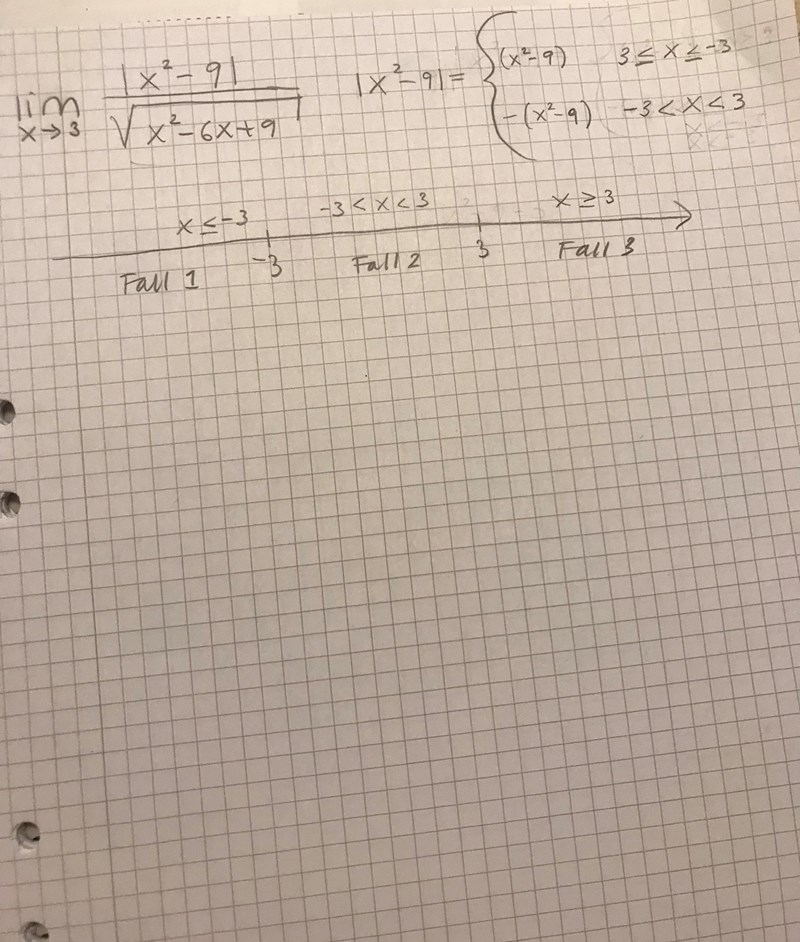 lim x→3 |x²-9| / √(x²-6x+9)
|x²-9| = { (x²-9) 3 ≤ x ≤ -3
-(x²-9) -3 < x < 3
x ≤ -3 -3 < x < 3 x ≥ 3
-3 3
Fall 1 Fall 2 Fall 3